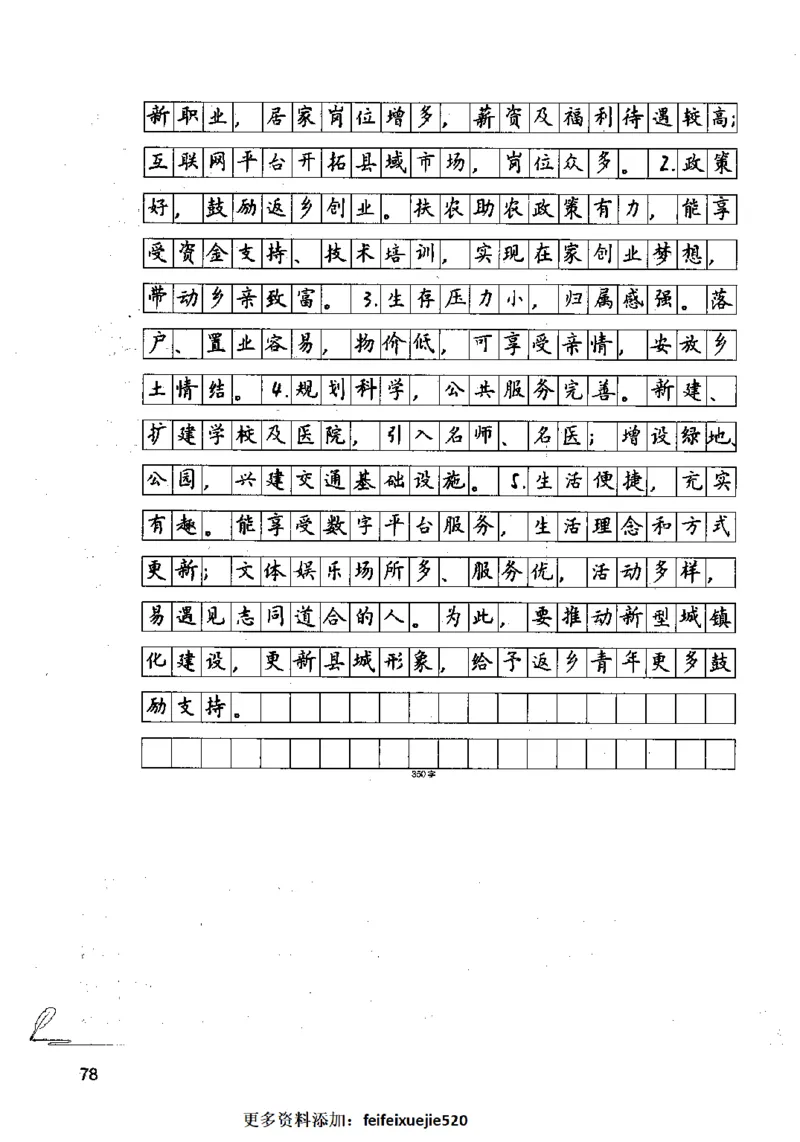 新职业，居家岗位增多，薪资及福利待遇较高；
互联网平台开拓县域市场，岗位众多。2.政策
好，鼓励返乡创业。扶农助农政策有力，能享
受资金支持、技术培训，实现在家创业梦想，
带动乡亲致富。3.生存压力小，归属感强。落
户、置业容易，物价低，可享受亲情，安放乡
土情结。4.规划科学，公共服务完善。新建、
扩建学校及医院，引入名师、名医；增设绿地、
公园，兴建交通基础设施。5.生活便捷，充实
有趣。能享受数字平台服务，生活理念和方式
更新；文体娱乐场所多、服务优，活动多样，
易遇见志同道合的人。为此，要推动新型城镇
化建设，更新县城形象，给予返乡青年更多鼓
励支持。
350字
78
更多资料添加：feifeixuejie520